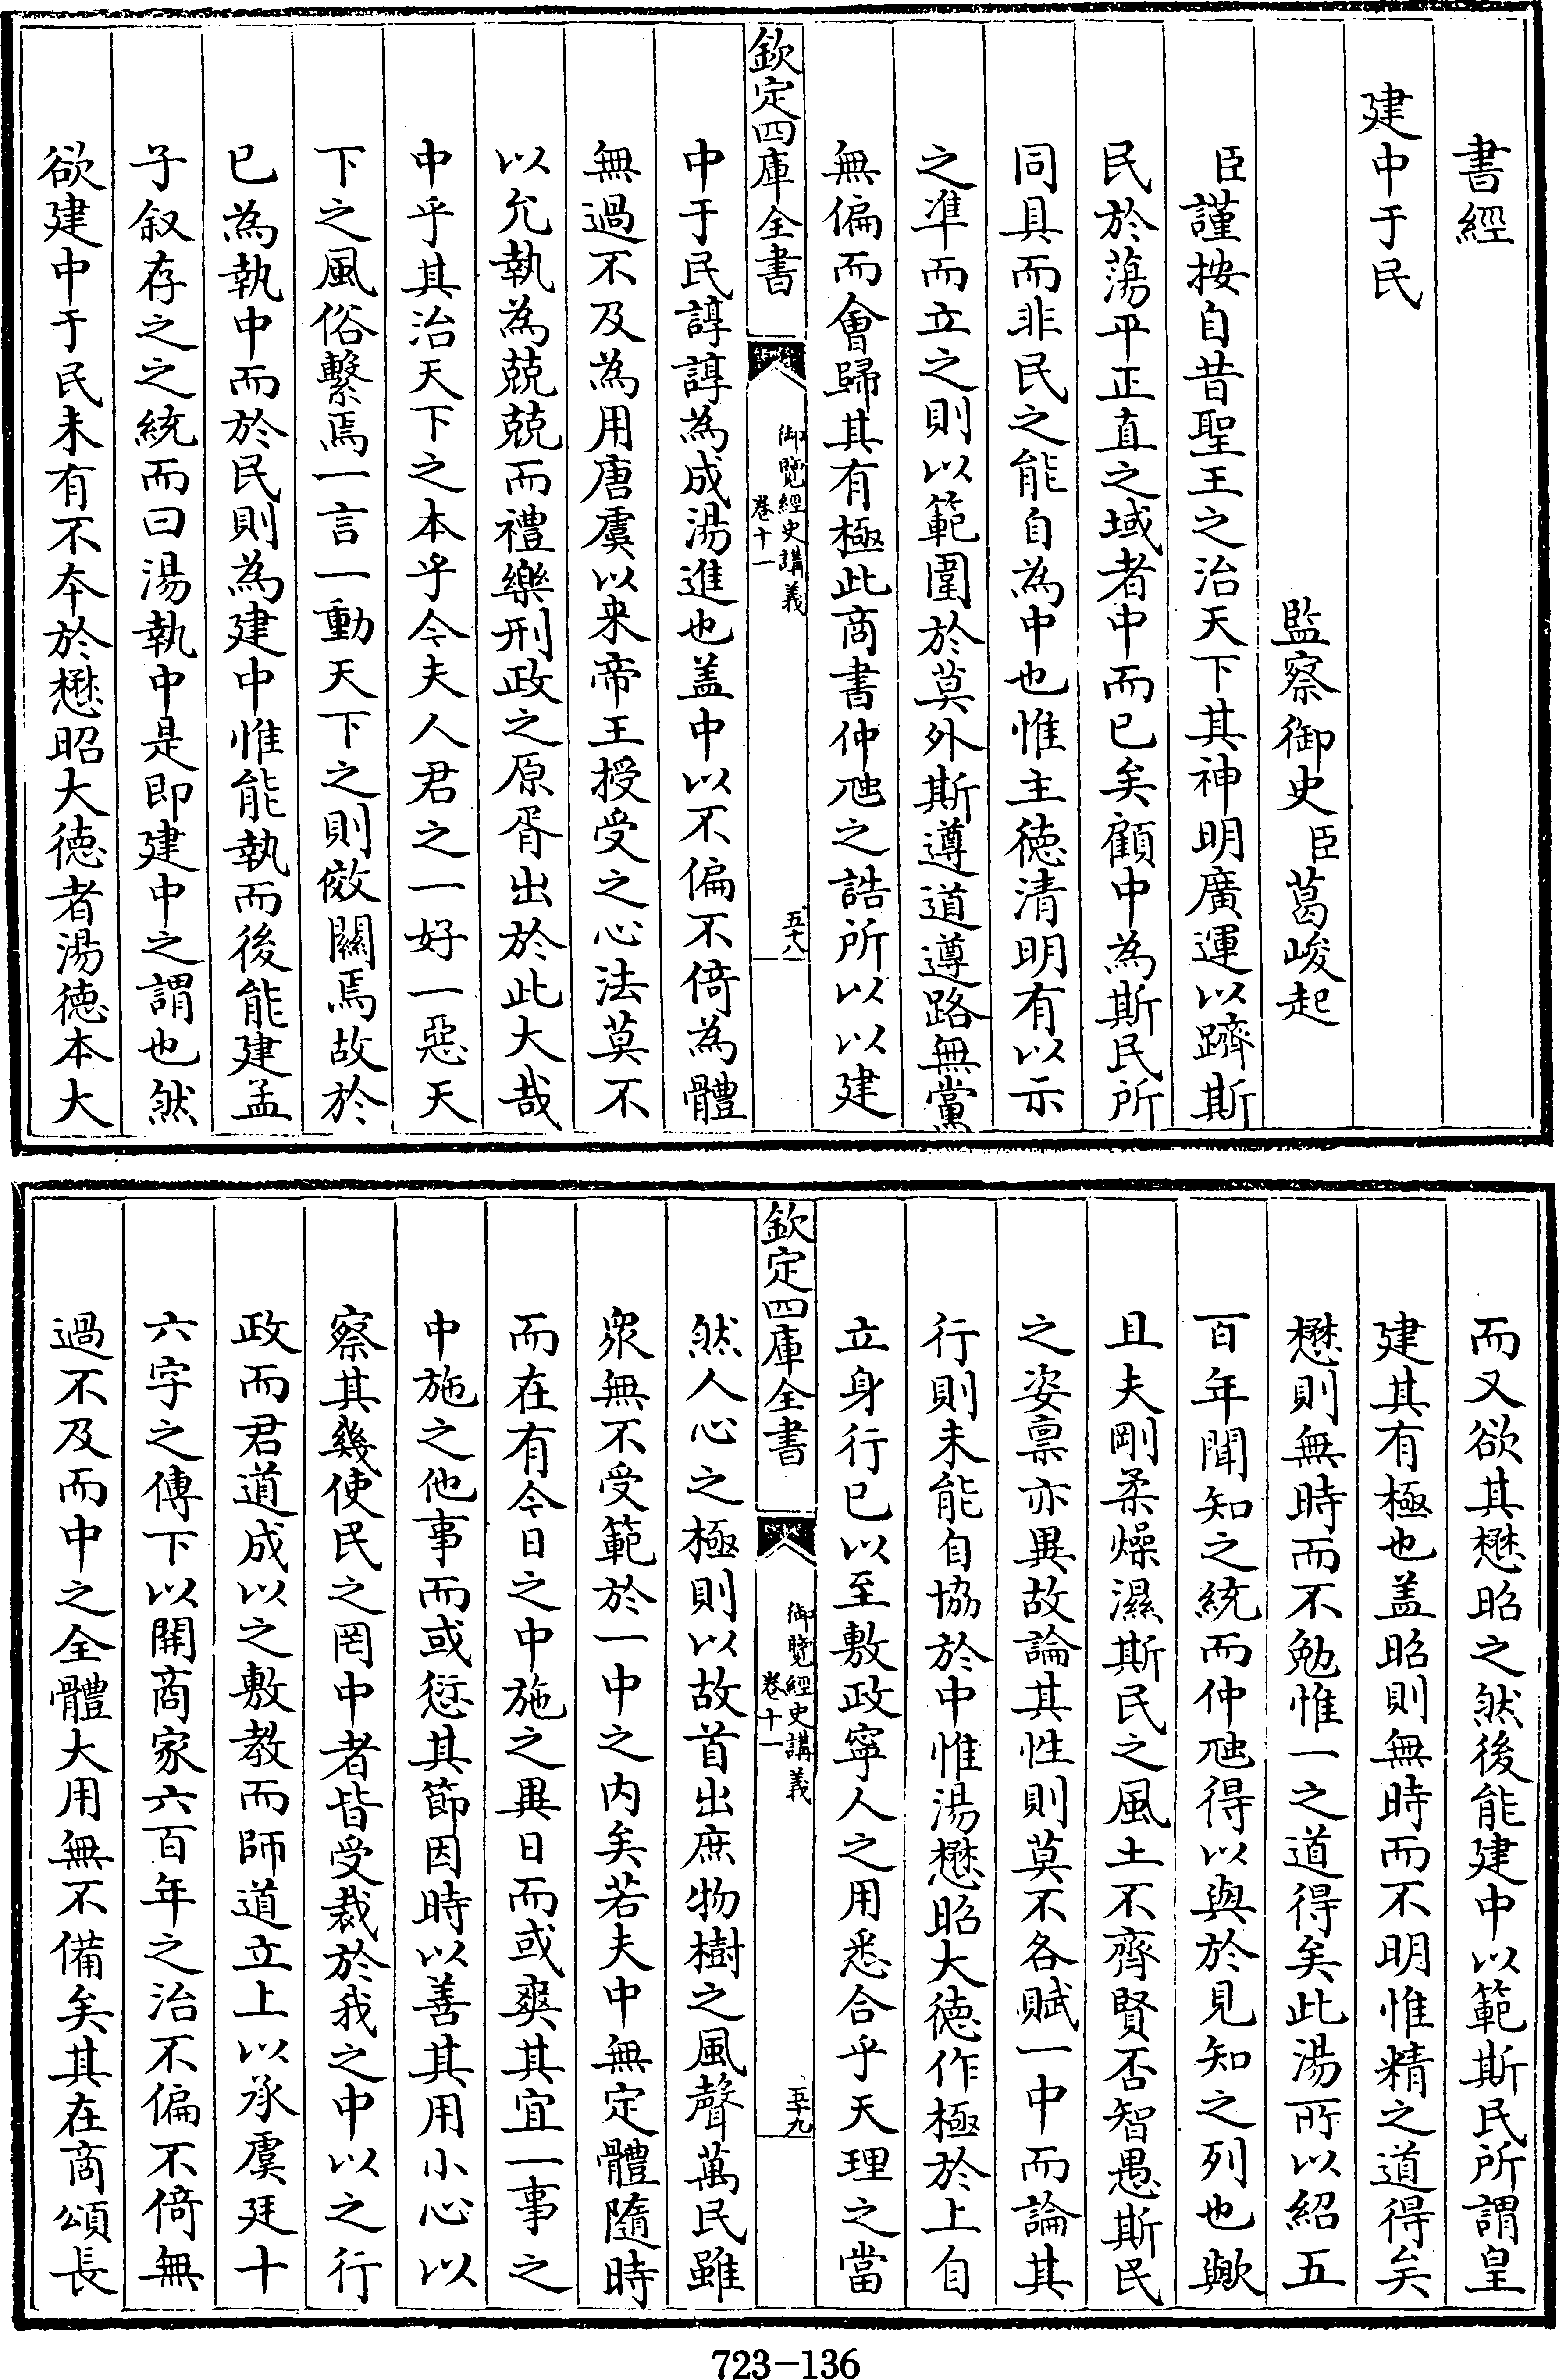 書經
建中于民
監察御史臣葛峻起
臣謹按自昔聖王之治天下其神明廣運以躋斯
民於蕩平正直之域者中而已矣顧中為斯民所
同具而非民之能自為中也惟主德清明有以示
之準而立之則以範圍於莫外斯遵道遵路無黨
無偏而會歸其有極此商書仲虺之誥所以以建
欽定四庫全書
御覽經史講義
卷十一
五十八
中于民諄諄為成湯進也盖中以不偏不倚為體
無過不及為用唐虞以来帝王授受之心法莫不
以允執為兢兢而禮樂刑政之原胥出於此大哉
中乎其治天下之本乎今夫人君之一好一惡天
下之風俗繫焉一言一動天下之則傚關焉故於
已為執中而於民則為建中惟能執而後能建孟
子叙存之之統而曰湯執中是即建中之謂也然
欲建中于民未有不本於懋昭大德者湯德本大
而又欲其懋昭之然後能建中以範斯民所謂皇
建其有極也盖昭則無時而不明惟精之道得矣
懋則無時而不勉惟一之道得矣此湯所以紹五
百年聞知之統而仲虺得以與於見知之列也歟
且夫剛柔燥濕斯民之風土不齊賢否智愚斯民
之姿禀亦異故論其性則莫不各賦一中而論其
行則未能自協於中惟湯懋昭大德作極於上自
立身行已以至敷政寧人之用悉合乎天理之當
欽定四庫全書
御覽經史講義
卷十一
五十九
然人心之極則以故首出庶物樹之風聲萬民雖
衆無不受範於一中之内矣若夫中無定體隨時
而在有今日之中施之異日而或爽其宜一事之
中施之他事而或愆其節因時以善其用小心以
察其幾使民之罔中者皆受裁於我之中以之行
政而君道成以之敷教而師道立上以承虞廷十
六字之傳下以開商家六百年之治不偏不倚無
過不及而中之全體大用無不備矣其在商頌長
723-136